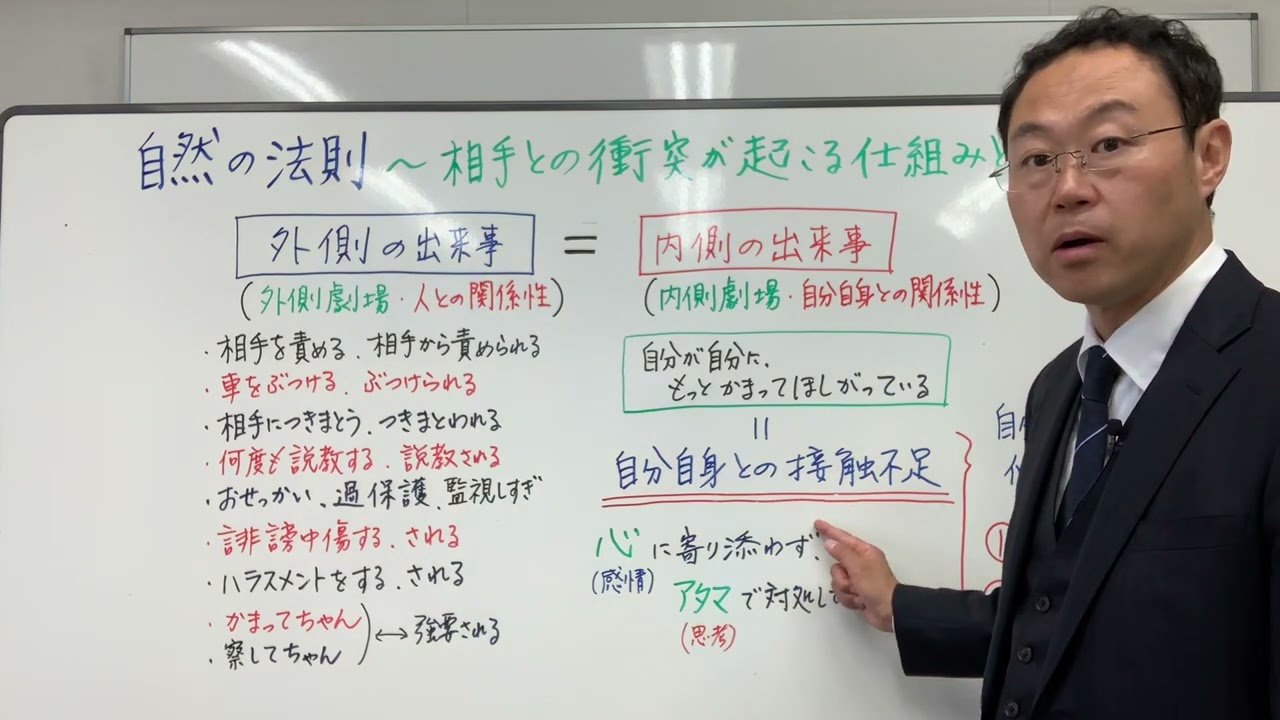 自然の法則 ~ 相手との衝突が起こる仕組みと
外側の出来事 = 内側の出来事
(外側劇場・人との関係性) (内側劇場・自分自身との関係性)
・相手を責める、相手から責められる
・車をぶつける、ぶつけられる
・相手につきまとう、つきまとわれる
・何度も説教する、説教される
・おせっかい、過保護、監視しすぎ
・誹謗中傷する、される
・ハラスメントをする、される
・かまってちゃん
・察してちゃん
↔ 強要される
自分が自分に、
もっとかまってほしがっている
=
自分自身との接触不足
心に寄り添わず、
(感情)
アタマで対処して
(思考)
自
①